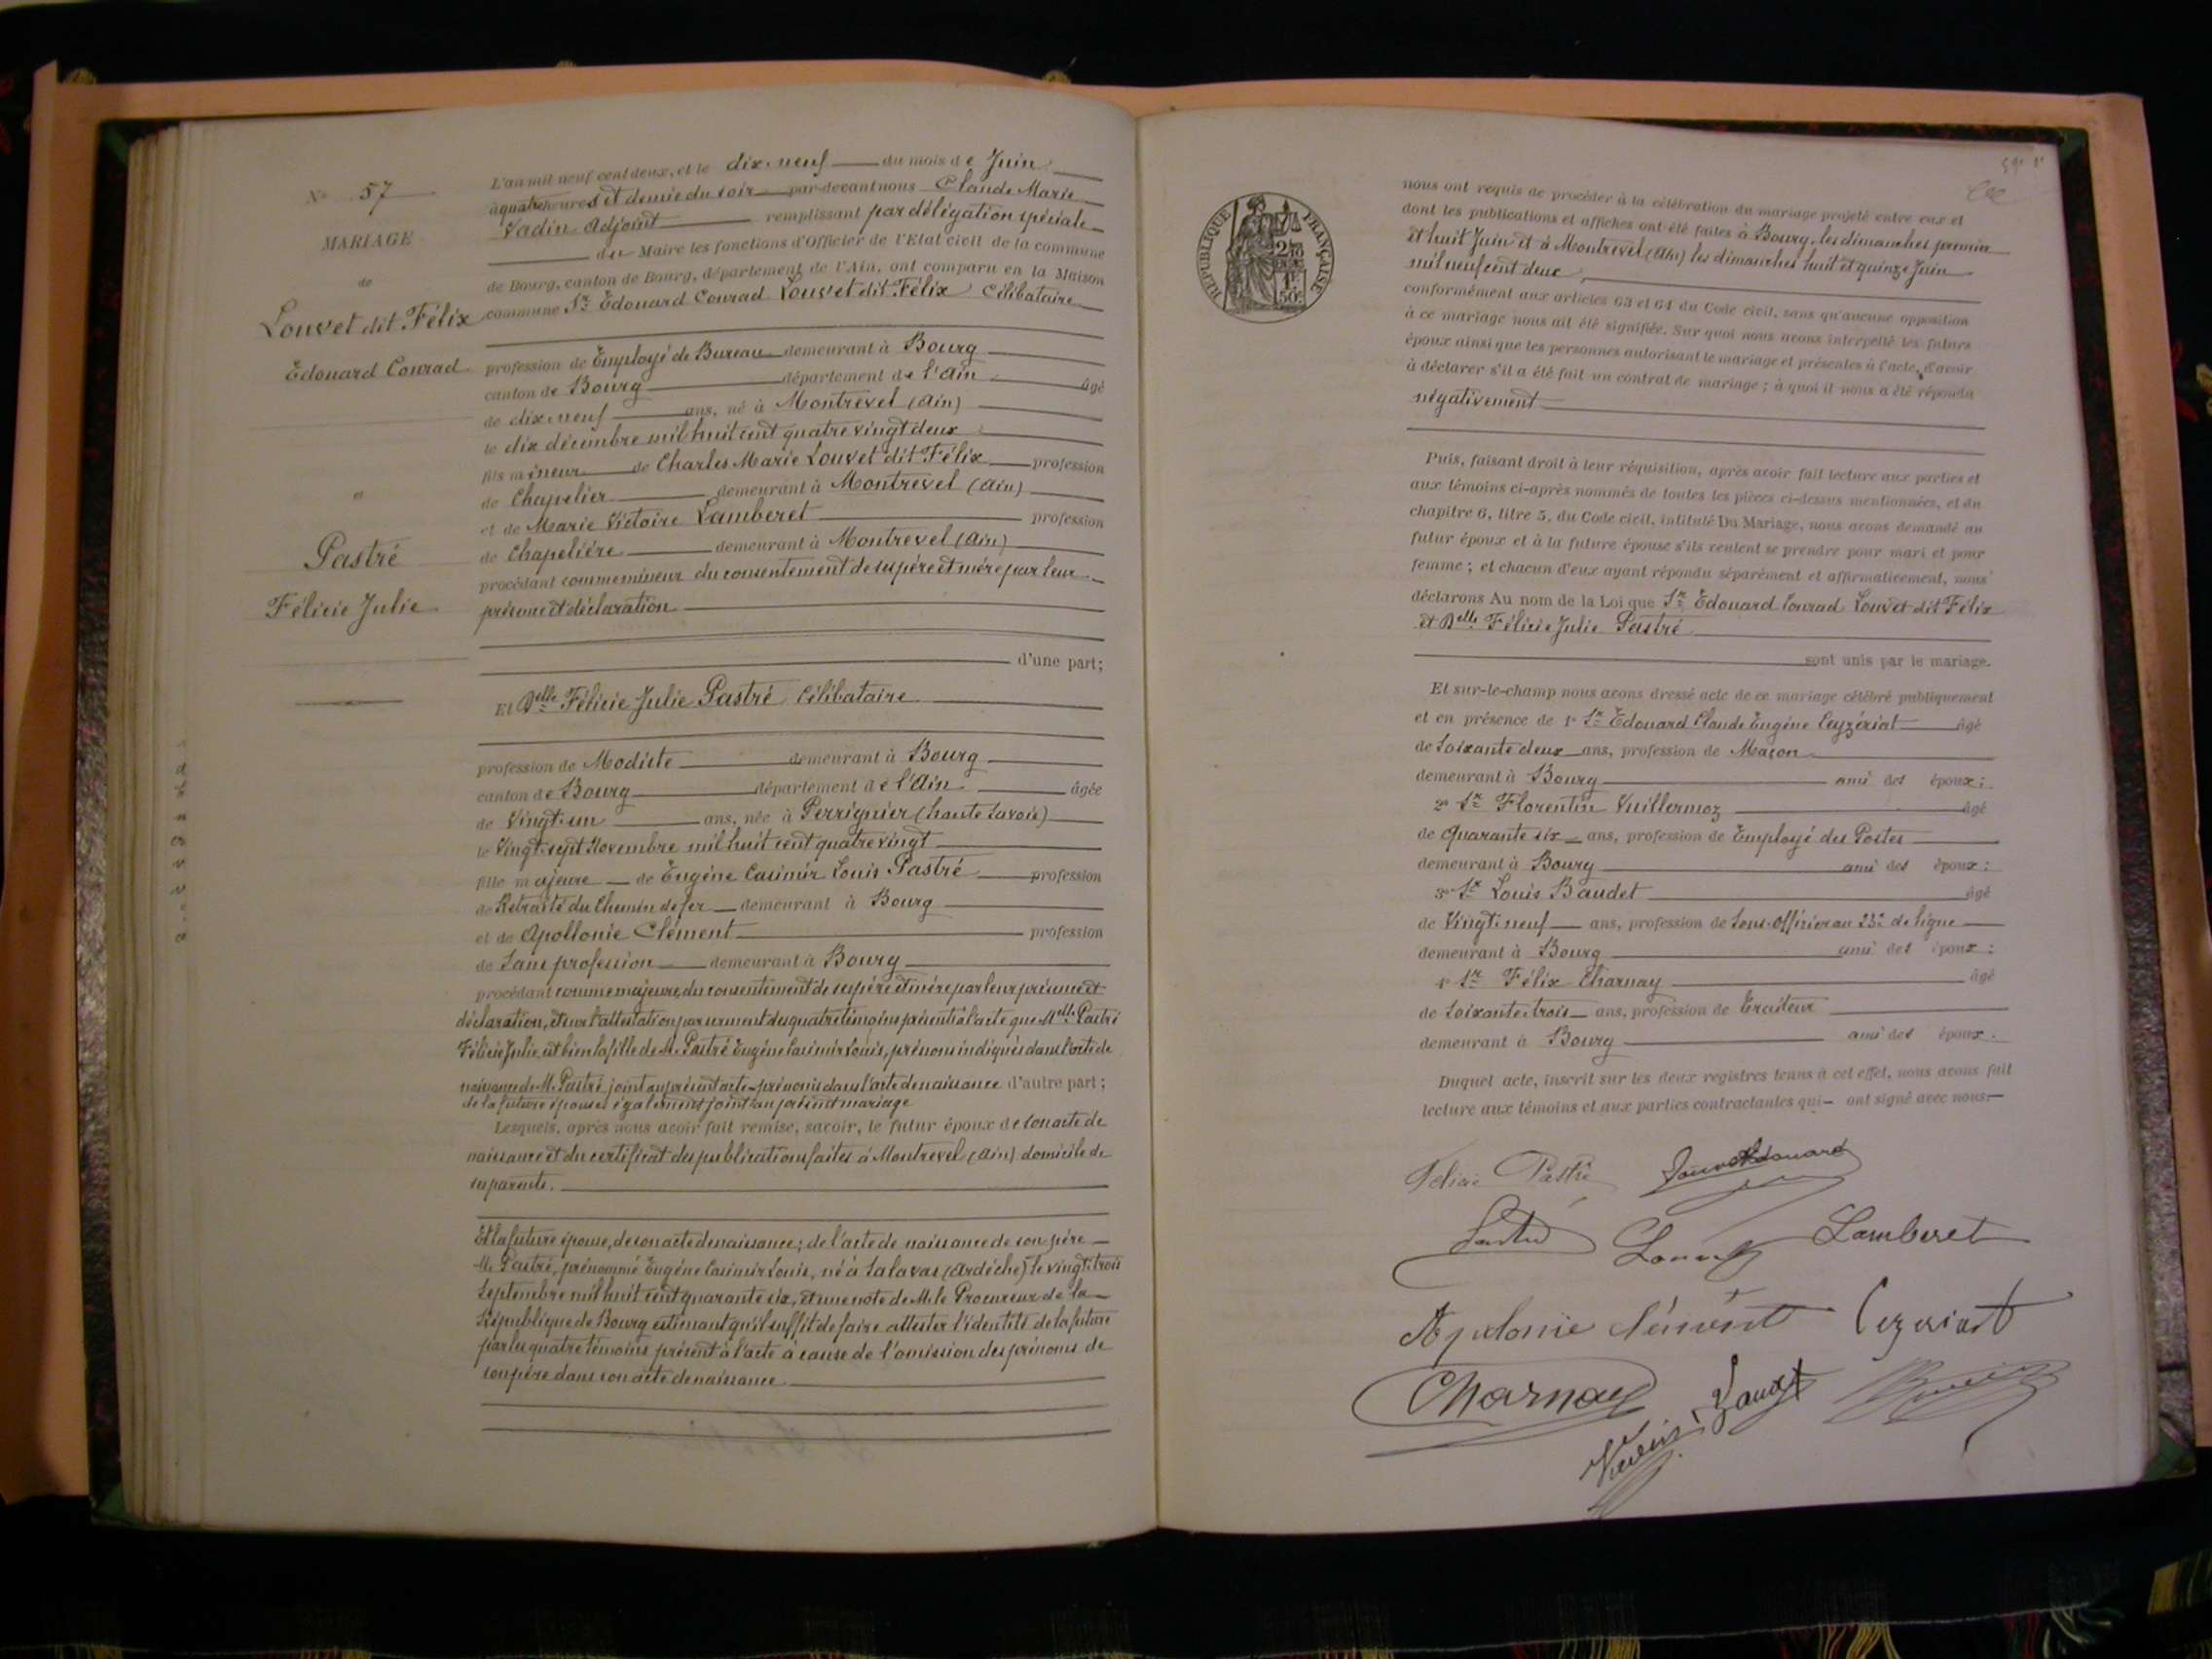 N° 57
MARIAGE
de
Louvet dit Félix
Edouard Conrad
et
Pastré
Félicie Julie
L'an mil neuf cent deux, et le dix-neuf du mois de Juin
à quatre heures et demie du soir par-devant nous Claude Marie
Vadin Adjoint remplissant par délégation spéciale
du Maire les fonctions d'Officier de l'Etat civil de la commune
de Bourg, canton de Bourg, département de l'Ain, ont comparu en la Maison
commune Sr Edouard Conrad Louvet dit Félix Célibataire
profession de Employé de Bureau demeurant à Bourg
canton de Bourg département de l'Ain âgé
de dix-neuf ans, né à Montrevel (Ain)
le dix décembre mil huit cent quatre vingt deux
fils mineur de Charles Marie Louvet dit Félix profession
de Chapelier demeurant à Montrevel (Ain)
et de Marie Victoire Lamberet profession
de Chapelière demeurant à Montrevel (Ain)
procédant comme mineur du consentement de ses père et mère par leur
présence et déclaration
d'une part;
Et Delle Félicie Julie Pastré Célibataire
profession de Modiste demeurant à Bourg
canton de Bourg département de l'Ain âgée
de Vingt-un ans, née à Perrignier (haute Savoie)
le Vingt-sept Novembre mil huit cent quatre vingt
fille majeure de Eugène Casimir Louis Pastré profession
de Retraité du Chemin de fer demeurant à Bourg
et de Apollonie Clément profession
de Sans profession demeurant à Bourg
procédant comme majeure, du consentement de ses père et mère par leur présence et
déclaration, et sur l'attestation par serment des quatre témoins présents à l'acte que Melle Pastré
Félicie Julie est bien la fille de M. Pastré Eugène Casimir Louis, prénoms indiqués dans l'acte de
naissance de M. Pastré joint au présent acte prénoms dans l'acte de naissance d'autre part;
de la future épouse, également joint au présent mariage
Lesquels, après nous avoir fait remise, savoir, le futur époux de son acte de
naissance et du certificat des publications faites à Montrevel (Ain) domicile de
ses parents.
Et la future épouse, de son acte de naissance; de l'acte de naissance de son père
M. Pastré, prénommé Eugène Casimir Louis, né à Salavas (Ardèche) le vingt-trois
Septembre mil huit cent quarante six, et une note de M. le Procureur de la
République de Bourg estimant qu'il suffit de faire attester l'identité de la future
par les quatre témoins présent à l'acte à cause de l'omission des prénoms de
son père dans son acte de naissance
RÉPUBLIQUE FRANÇAISE
1F
50c
nous ont requis de procéder à la célébration du mariage projeté entre eux et
dont les publications et affiches ont été faites à Bourg, les dimanches premier
et huit Juin et à Montrevel (Ain) les dimanches huit et quinze Juin
mil neuf cent deux
conformément aux articles 63 et 64 du Code civil, sans qu'aucune opposition
à ce mariage nous ait été signifiée. Sur quoi nous avons interpellé les futurs
époux ainsi que les personnes autorisant le mariage et présentes à l'acte, d'avoir
à déclarer s'il a été fait un contrat de mariage; à quoi il nous a été répondu
négativement
Puis, faisant droit à leur réquisition, après avoir fait lecture aux parties et
aux témoins ci-après nommés de toutes les pièces ci-dessus mentionnées, et du
chapitre 6, titre 5, du Code civil, intitulé Du Mariage, nous avons demandé au
futur époux et à la future épouse s'ils veulent se prendre pour mari et pour
femme; et chacun d'eux ayant répondu séparément et affirmativement, nous
déclarons Au nom de la Loi que Sr Edouard Conrad Louvet dit Félix
et Delle Félicie Julie Pastré
sont unis par le mariage.
Et sur-le-champ nous avons dressé acte de ce mariage célébré publiquement
et en présence de 1° Sr Edouard Claude Eugène Ceyzériat âgé
de Soixante deux ans, profession de Maçon
demeurant à Bourg ami des époux;
2° Sr Florentin Vuillermoz âgé
de Quarante six ans, profession de Employé des Postes
demeurant à Bourg ami des époux;
3° Sr Louis Baudet âgé
de Vingt-neuf ans, profession de Sous-Officier au 23e de ligne
demeurant à Bourg ami des époux;
4° Sr Félix Charnay âgé
de Soixante-trois ans, profession de Traiteur
demeurant à Bourg ami des époux.
Duquel acte, inscrit sur les deux registres tenus à cet effet, nous avons fait
lecture aux témoins et aux parties contractantes qui ont signé avec nous.
Félicie Pastré Louvet Edouard
Pastré Louvet Lamberet
Apolonie Clément Ceyzeriat
Charnay